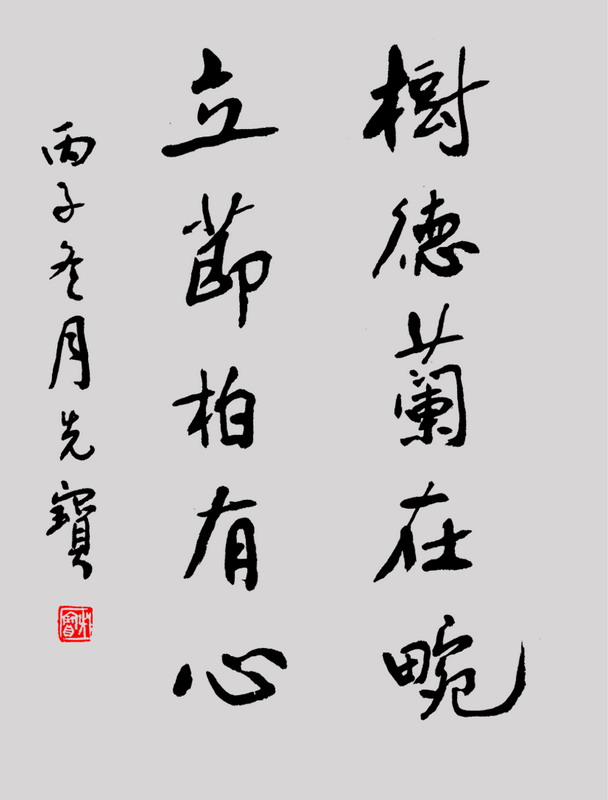 樹德蘭在畹
立節柏有心
丙子冬月先寶